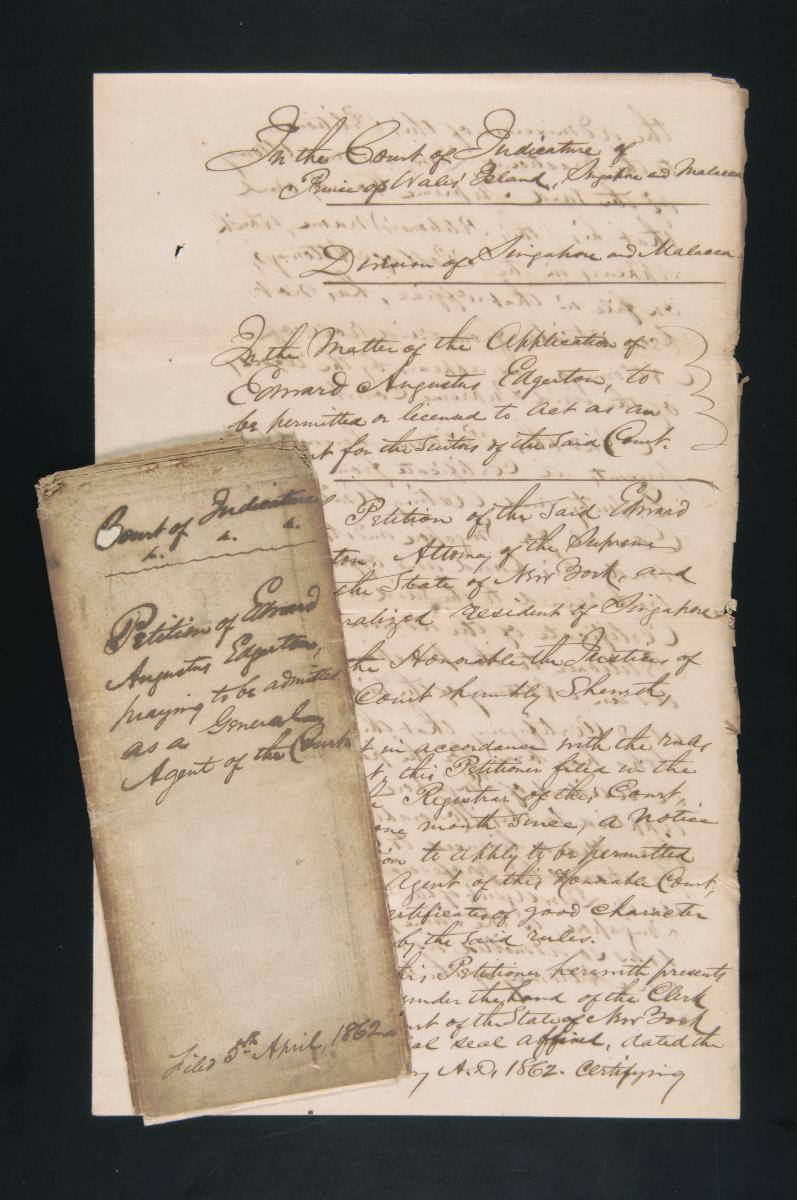 In the Court of Judicature of
Prince of Wales' Island, Singapore and Malacca
Division of Singapore and Malacca
In the Matter of the Application of
Edward Augustus Edgerton, to
be permitted or licensed to act as an
for the Suitors of the said Court.
Petition of the said Edward
Attorney of the Supreme
the State of New York, and
resident of Singapore
the Honorable the Justices of
Court humbly Sheweth,
in accordance with the rules
this Petitioner filed in the
Registrar of this Court,
one month since, a Notice
to apply to be permitted
Agent of this Honorable Court,
of good character
by the said rules.
Petitioner herewith presents
under the hand of the Clerk
of the State of New York
seal affixed, dated the
A.D. 1862. Certifying
Court of Judicature
&. &. &.
Petition of Edward
Augustus Edgerton,
praying to be admitted
as a General
Agent of the Court
Filed 5th April, 1862